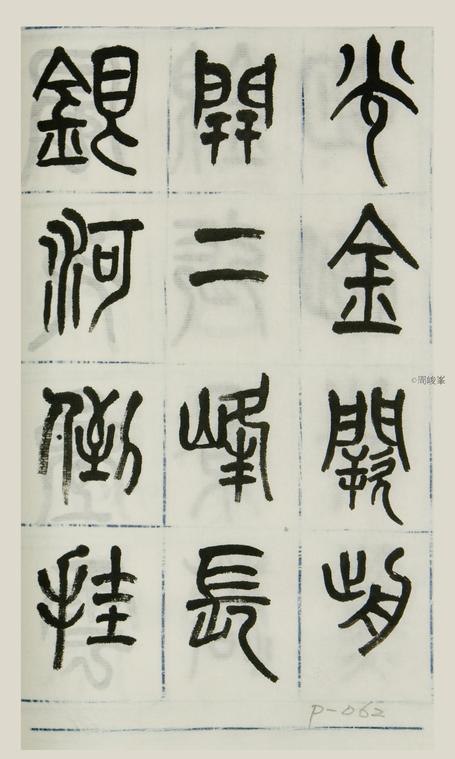 光金闕前
開二峰長
銀河倒挂
©周峻峯
P-062